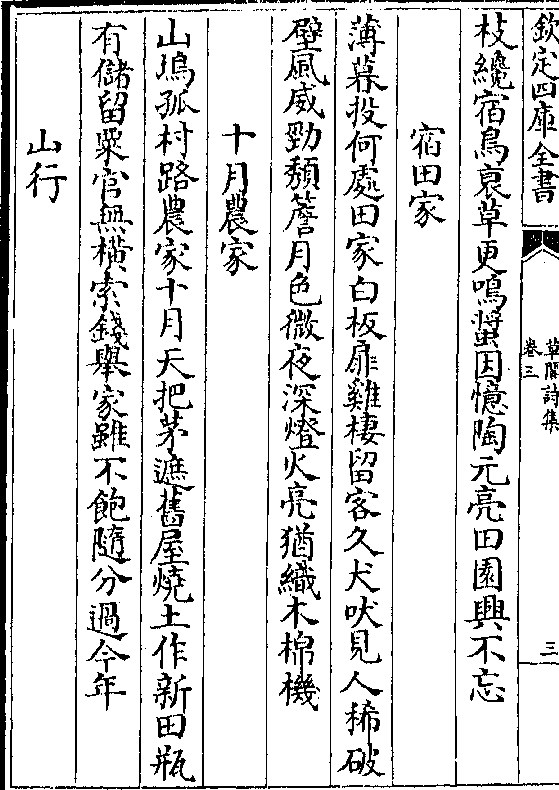 欽定四庫全書
草閣詩集
卷三
三
枝纔宿鳥衰草更鳴螿因憶陶元亮田園興不忘
宿田家
薄暮投何處田家白板扉雞棲留客久犬吠見人稀破
壁風威勁頽簷月色微夜深燈火亮猶織木棉機
十月農家
山塢孤村路農家十月天把茅遮舊屋燒土作新田瓶
有儲留粟官無橫索錢舉家雖不飽隨分過今年
山行